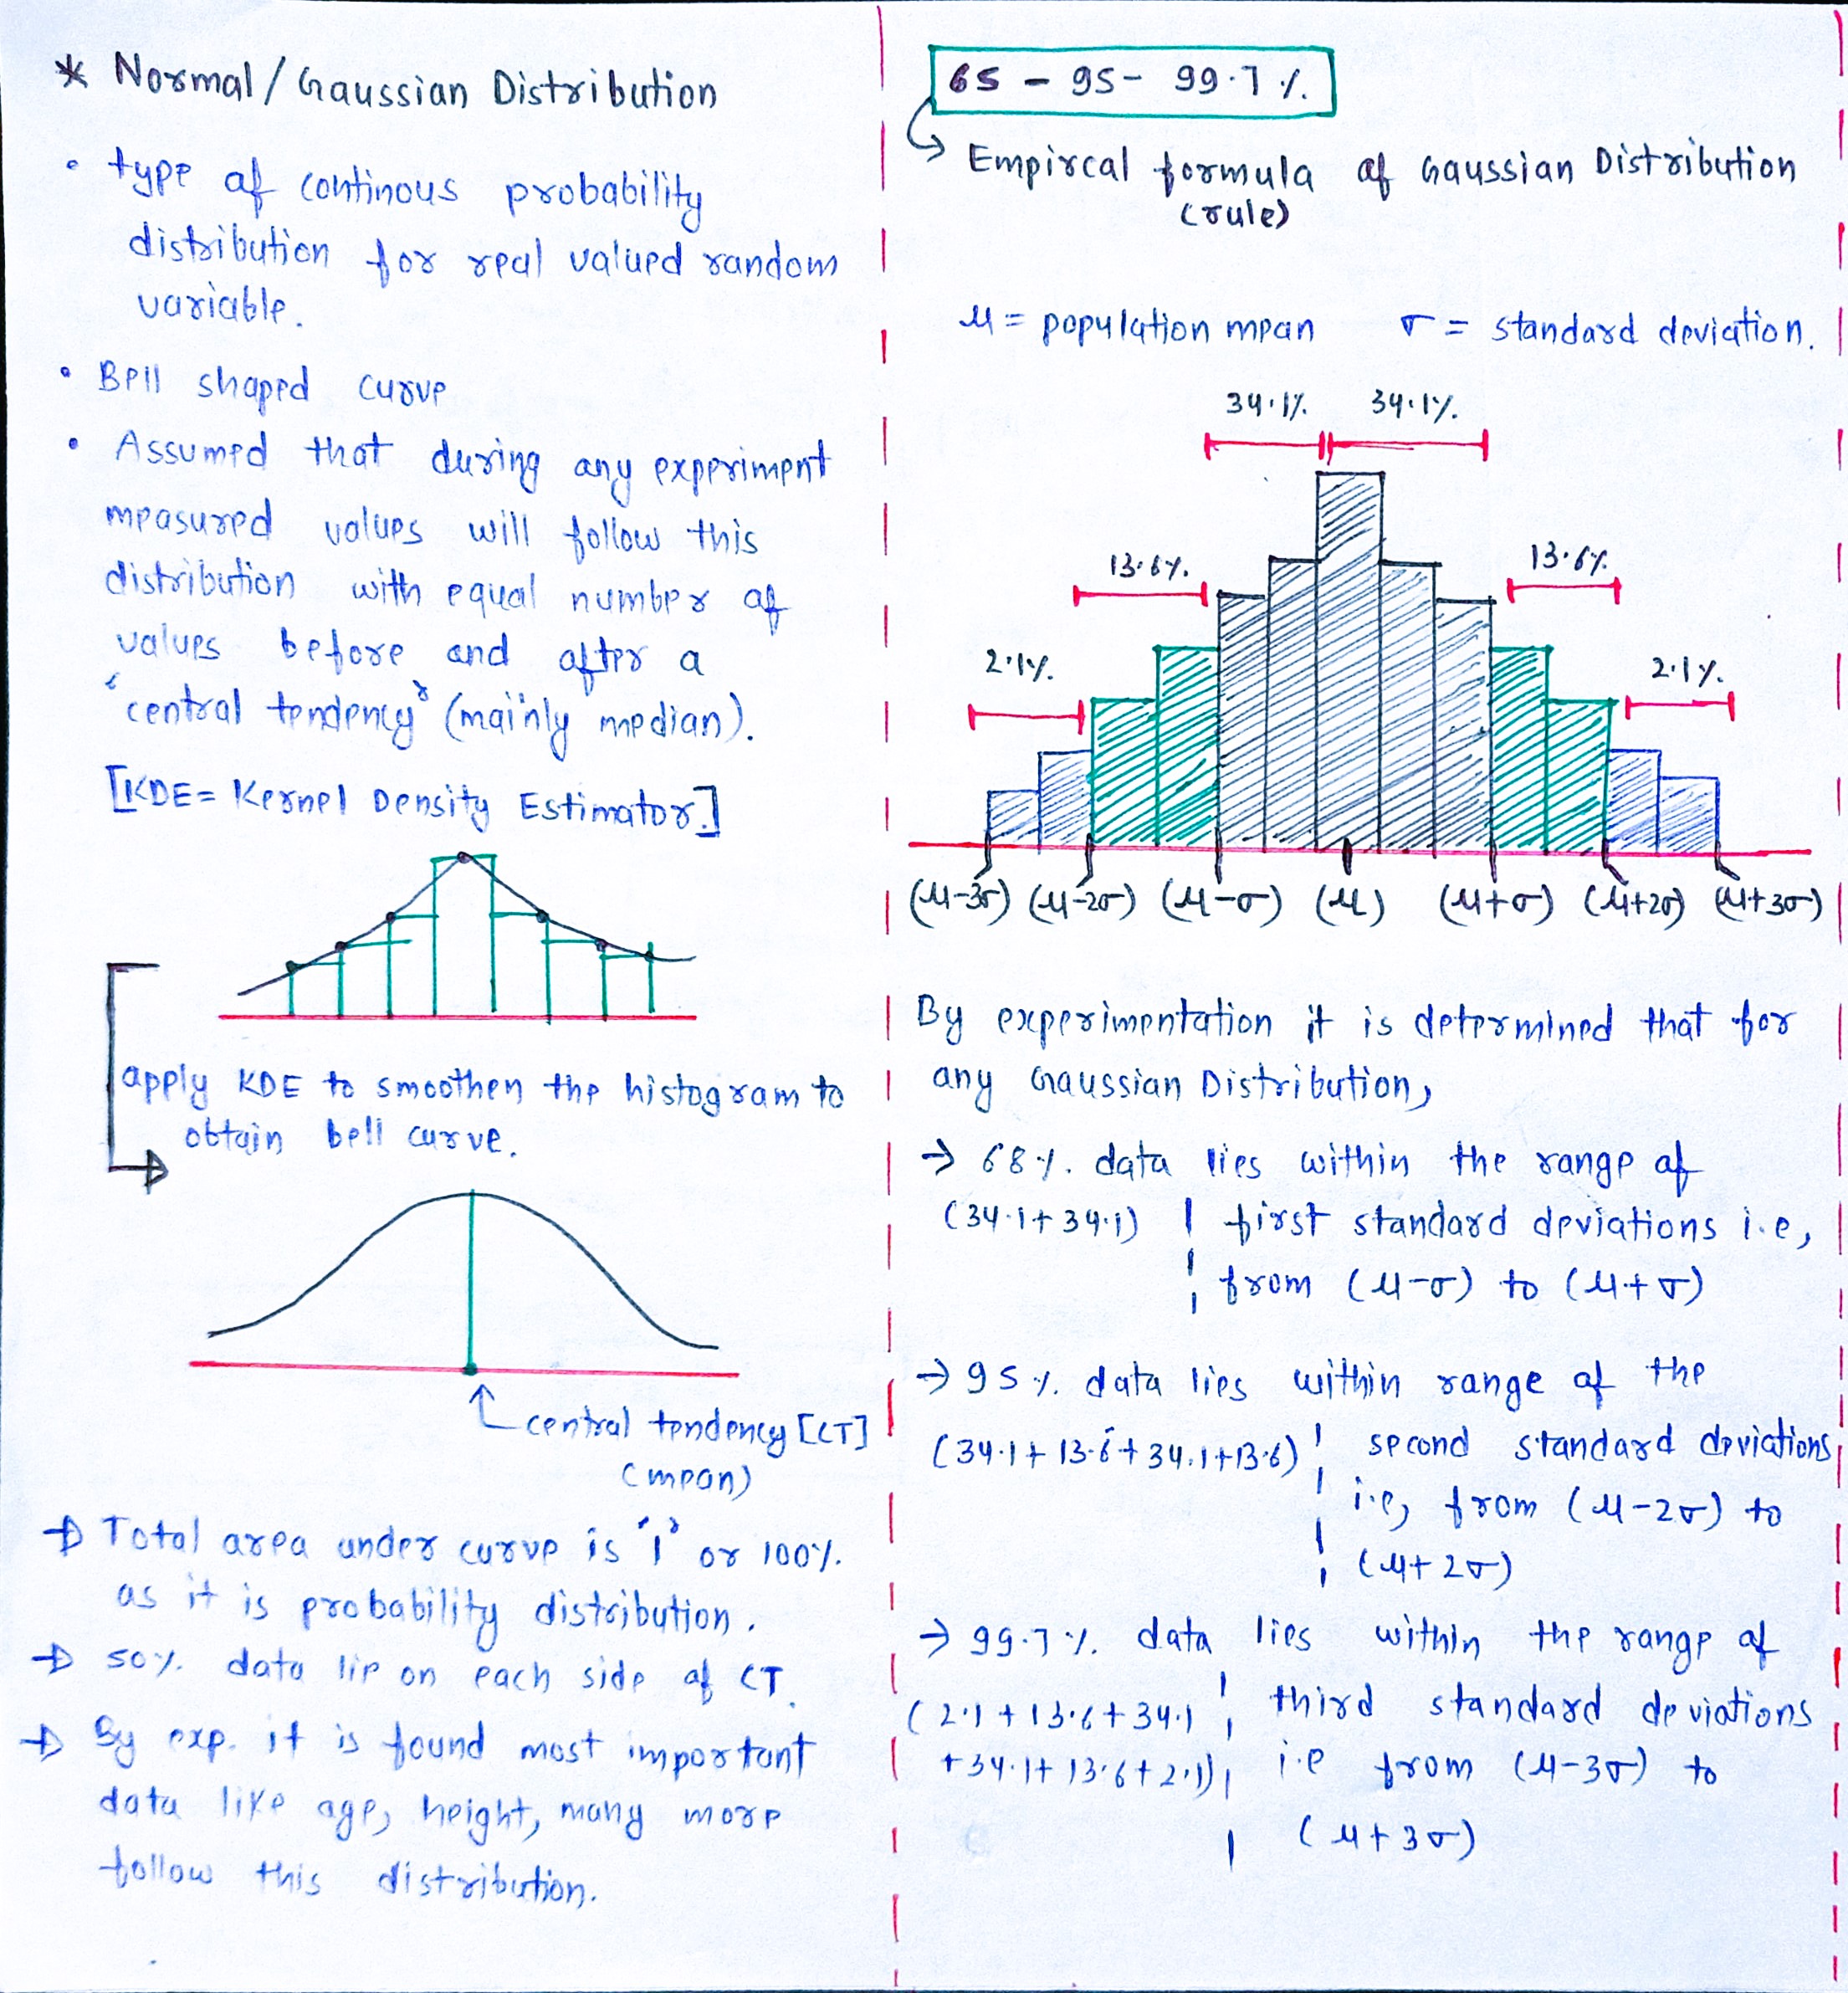 * Normal / Gaussian Distribution
• type of continous probability
distribution for real valued random
variable.
• Bell shaped curve
• Assumed that during any experiment
measured values will follow this
distribution with equal number of
values before and after a
'central tendency' (mainly median).
[KDE = Kernel Density Estimator.]
apply KDE to smoothen the histogram to
obtain bell curve.
central tendency [CT]
(mean)
→ Total area under curve is '1' or 100%.
as it is probability distribution.
→ 50%. data lie on each side of CT.
→ By exp. it is found most important
data like age, height, many more
follow this distribution.
65 - 95 - 99.7 %.
↳ Empircal formula of Gaussian Distribution
(rule)
μ = population mean σ = standard deviation.
34.1%. 34.1%.
13.6%. 13.6%.
2.1%. 2.1%.
(μ-3σ) (μ-2σ) (μ-σ) (μ) (μ+σ) (μ+2σ) (μ+3σ)
By experimentation it is determined that for
any Gaussian Distribution,
→ 68%. data lies within the range of
(34.1+34.1) first standard deviations i.e,
from (μ-σ) to (μ+σ)
→ 95%. data lies within range of the
(34.1+13.6+34.1+13.6) second standard deviations
i.e, from (μ-2σ) to
(μ+2σ)
→ 99.7%. data lies within the range of
(2.1+13.6+34.1 third standard deviations
+34.1+13.6+2.1) i.e from (μ-3σ) to
(μ+3σ)